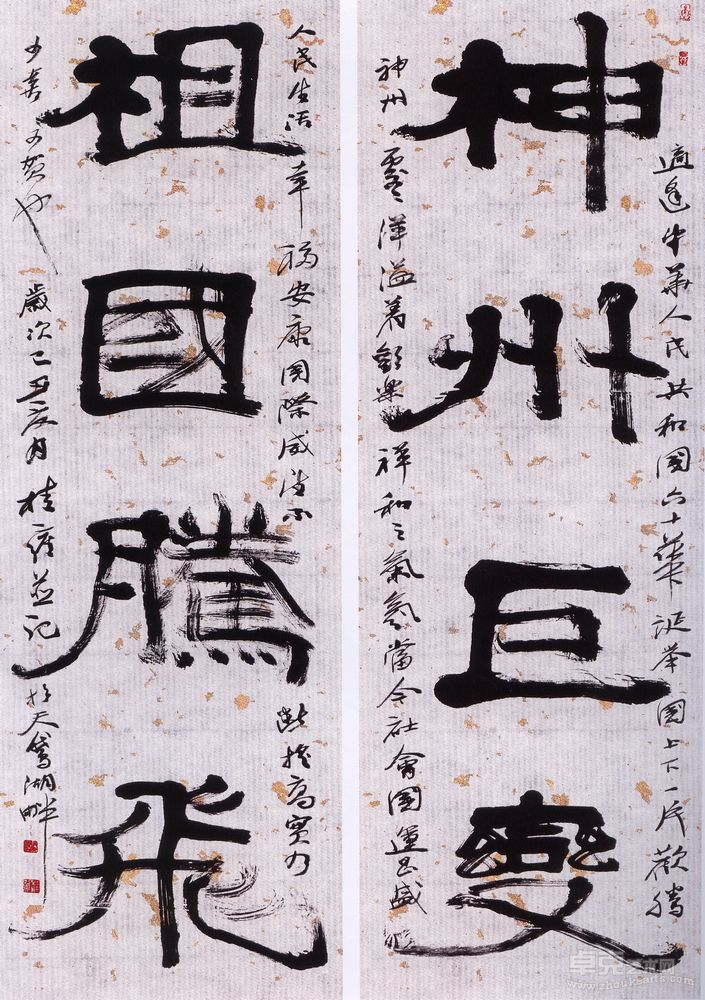 神州巨變
適逢中華人民共和國六十華誕举國上下一片歡騰
神州處處洋溢着歡樂祥和之氣氛當今社會國運昌盛
祖國騰飛
人民生活幸福安康国際威望不
斷提高實乃
可喜可賀也
歲次己丑夏月桂 並記
於天鵝湖畔
卓克艺术网
www.zhoukearts.com